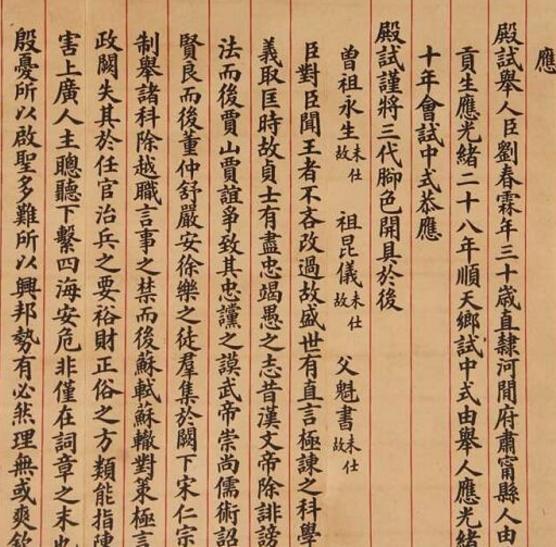 應
殿試舉人臣劉春霖年三十歲直隸河間府肅甯縣人由
貢生應光緒二十八年順天鄉試中式由舉人應光緒
十年會試中式恭應
殿試謹將三代腳色開具於後
曾祖永生未仕故 祖昆儀未仕故 父魁書未仕故
臣對臣聞王者不吝改過故盛世有直言極諫之科學
義取匡時故貞士有盡忠竭愚之志昔漢文帝除誹謗
法而後賈山賈誼爭致其忠讜之謨武帝崇尚儒術詔
賢良而後董仲舒嚴安徐樂之徒羣集於闕下宋仁宗
制舉諸科除越職言事之禁而後蘇軾蘇轍對策極言
政闕失其於任官治兵之要裕財正俗之方類能指陳
害上廣人主聰聽下繫四海安危非僅在詞章之末也
殷憂所以啟聖多難所以興邦勢有必然理無或爽欽